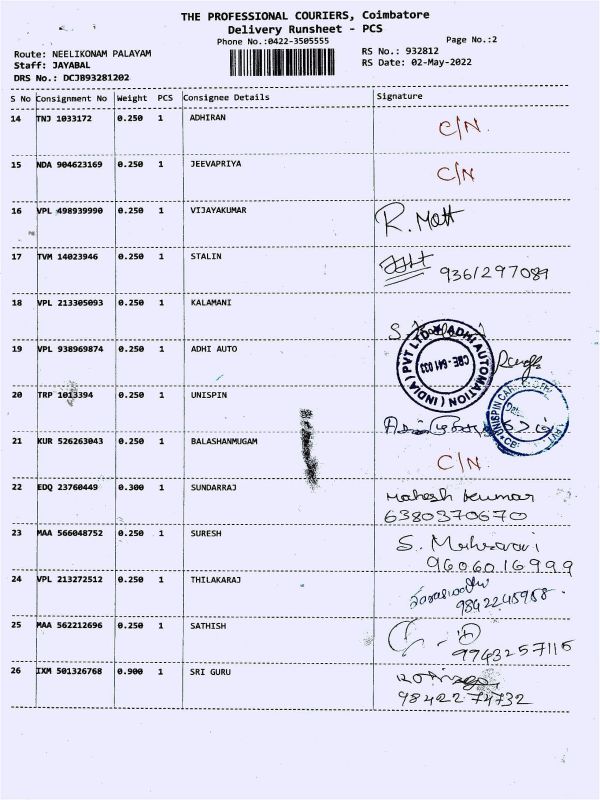 THE PROFESSIONAL COURIERS, Coimbatore
Delivery Runsheet - PCS
Phone No.:0422-3505555
Page No.:2
Route: NEELIKONAM PALAYAM
RS No.: 932812
Staff: JAYABAL
RS Date: 02-May-2022
DRS No.: DCJB93281202
S No Consignment No Weight PCS Consignee Details Signature
14 TNJ 1033172 0.250 1 ADHIRAN C/N
15 NDA 904623169 0.250 1 JEEVAPRIYA C/N
16 VPL 498939990 0.250 1 VIJAYAKUMAR
17 TVM 14023946 0.250 1 STALIN 9361297089
18 VPL 213305093 0.250 1 KALAMANI
19 VPL 938969874 0.250 1 ADHI AUTO
ADHI AUTOMATION (INDIA) PVT LTD
CBE-641 033
20 TRP 1013394 0.250 1 UNISPIN
21 KUR 526263043 0.250 1 BALASHANMUGAM C/N
22 EDQ 23760449 0.300 1 SUNDARRAJ Mahesh kumar
6380370670
23 MAA 566048752 0.250 1 SURESH
9606016999
24 VPL 213272512 0.250 1 THILAKARAJ
25 MAA 562212696 0.250 1 SATHISH
9943257116
26 IXM 501326768 0.900 1 SRI GURU
9842274732